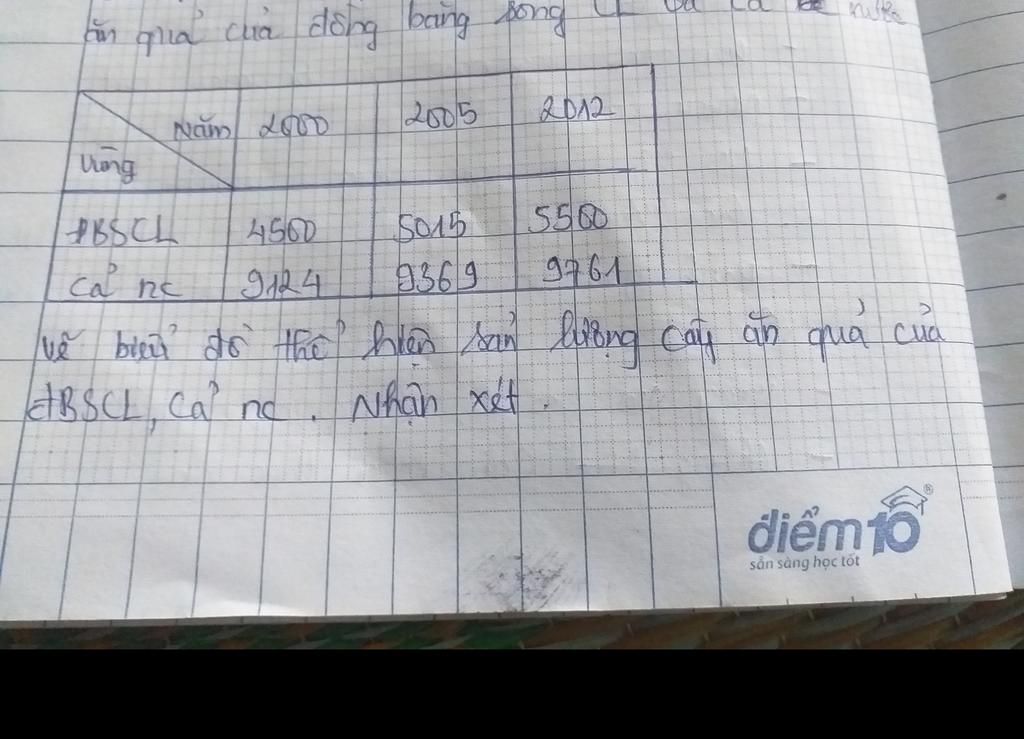 ăn quả của đồng bằng sông
Năm 2000 2005 2012
Vùng
ĐBSCL 4500 5015 5560
Cả nc 9124 9369 9761
vẽ biểu đồ thể hiện sản lượng cây ăn quả của
ĐBSCL, Cả nc. Nhận xét.
điểm10®
sẵn sàng học tốt